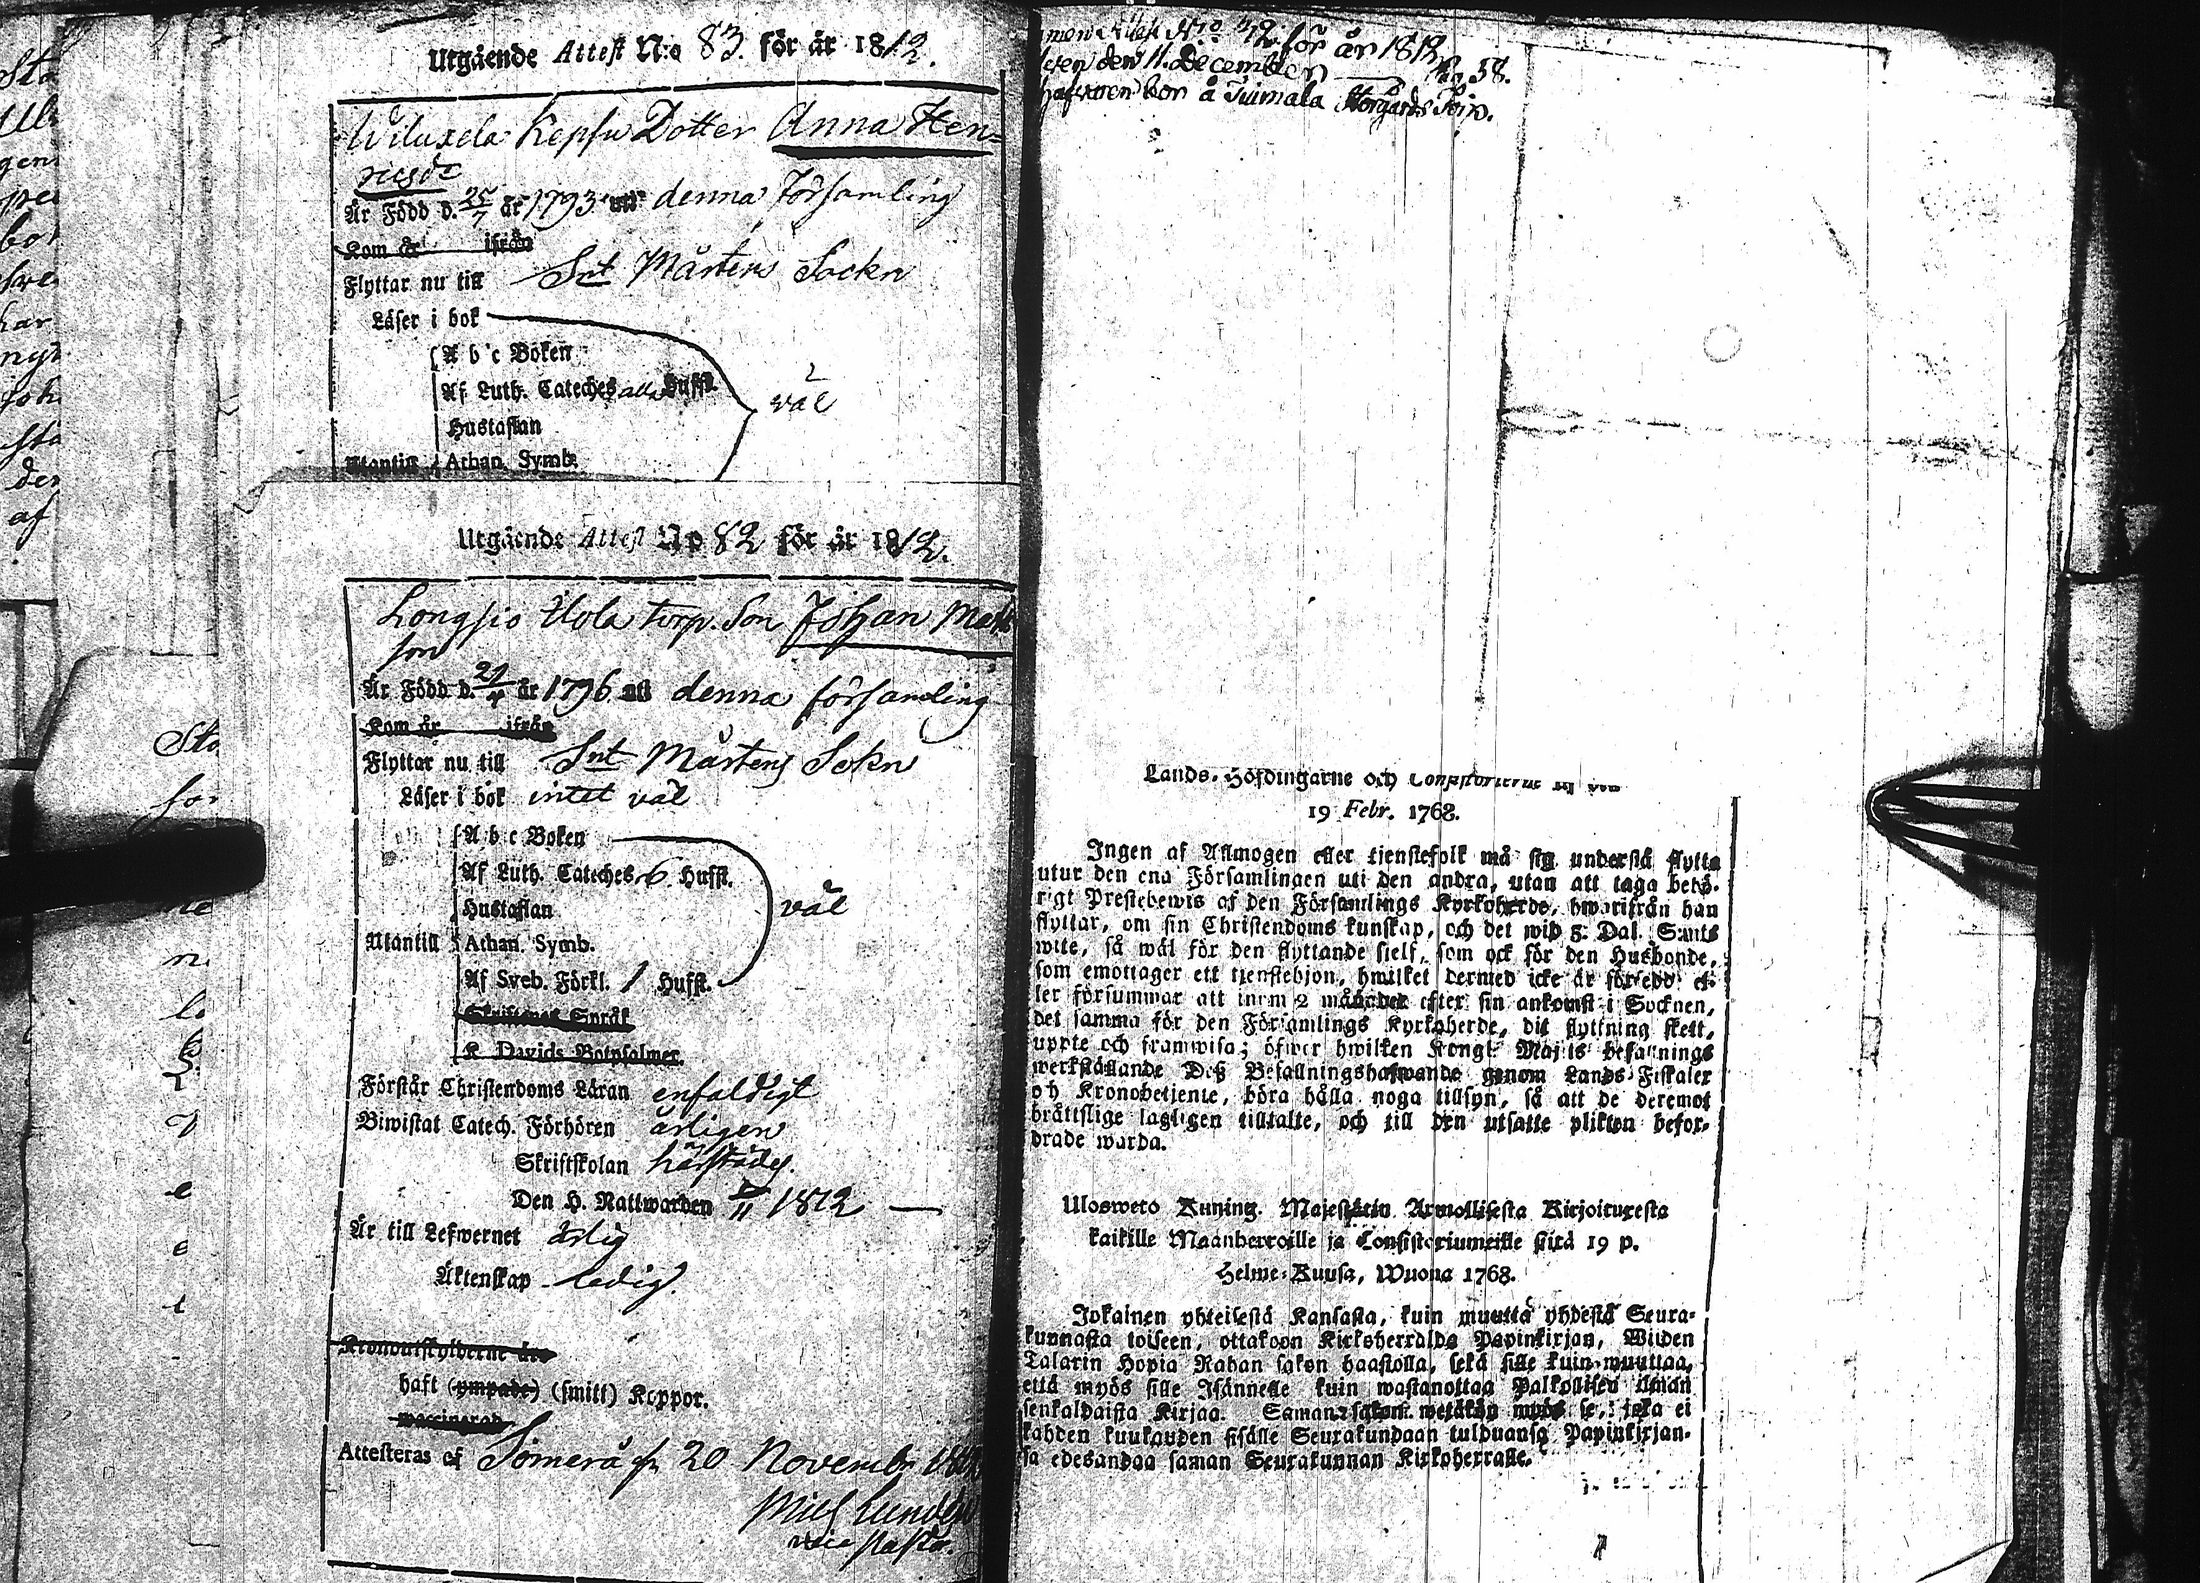 Utgående Attest N:o 83. för år 1812.
Wiluxela Kepsu Dotter Anna Hen=
ricsdr
Är Född d. 25/7 år 1793 uti denna Församling
Kom år ifrån
Flyttar nu till Snt Mårtens Sockn
Läser i bok
A b c Boken
Af Luth. Cateches alla Hufst.
väl
Hustaflan
Utantill Athan. Symb.
Utgående Attest No 82 för år 1812.
Långsjo Uola torp. Son Johan Matts
son
Är Född d. år 1796 uti denna församling
Kom år ifrån
Flyttar nu till Snt Mårtens Sokn
Läser i bok intet väl
A b c Boken
Af Luth. Cateches 6 Hufst.
Hustaflan väl
Utantill Athan. Symb.
Af Sveb. Förkl. 1 Hufst.
Skriftenes Språk
K Davids Botpsalmer.
Förstår Christendoms Läran enfaldigt
Biwistat Catech. Förhören årligen
Skriftskolan härstädes.
Den H. Nattwarden 1812
Är till Lefwernet ärlig
Äktenskap ledig.
Kronoutskylderne
haft (ympade) (smitt) Koppor.
waccinerad
Attesteras af Somero d. 20 Novembr 1812
Mich Lundgr
vice pastor.
Attest No 42 för år 1812
den 11. December Pag. 58.
bor å Tuimala Storgårds Torp.
Lands-Höfdingarne och Consistorierne
19 Febr. 1768.
Ingen af Allmogen eller tjenstefolk må sig understå flytta
utur den ena Församlingen uti den andra, utan att taga behö-
rigt Prestebewis af den Församlings Kyrkoherde, hwarifrån han
flyttar, om sin Christendoms kunskap, och det wid 5. Dal. S:mts
wite, så wäl för den flyttande sielf, som ock för den Husbonde,
som emottager ett tjenstehjon, hwilket dermed icke är försedd el-
ler försummar att inom 2 månader efter sin ankomst i Socknen,
det samma för den Församlings Kyrkoherde, dit flyttning skett,
uppte och framwisa; öfwer hwilken Kongl. Maj:ts befallnings
werkställande Deß Befallningshafwande genom Lands-Fiskaler
och Kronobetjente, böra hålla noga tillsyn, så att de deremot
bråttslige lagligen tilltalte, och till den utsatte plikten befor-
drade warda.
Ulosweto Kuning. Majestätin Armollisesta Kirjoituxesta
kaikille Maanherroille ja Consistoriumeille siitä 19 p.
Helme-Kuusa, Wuona 1768.
Jokainen yhteisestä Kansasta, kuin muutta yhdestä Seura-
kunnasta toiseen, ottakoon Kirkoherralda Papinkirjan, Wiiden
Talarin Hopia Rahan sakon haastolla, sekä sille kuin muuttaa,
että myös sille Isännelle kuin wastanottaa Palkollisen ilman
senkaldaista Kirjaa. Saman sakon wetäkön myös se, joka ei
kahden kuukauden sisälle Seurakundaan tulduansa Papinkirjan-
sa edesandaa saman Seurakunnan Kirkoherralle.